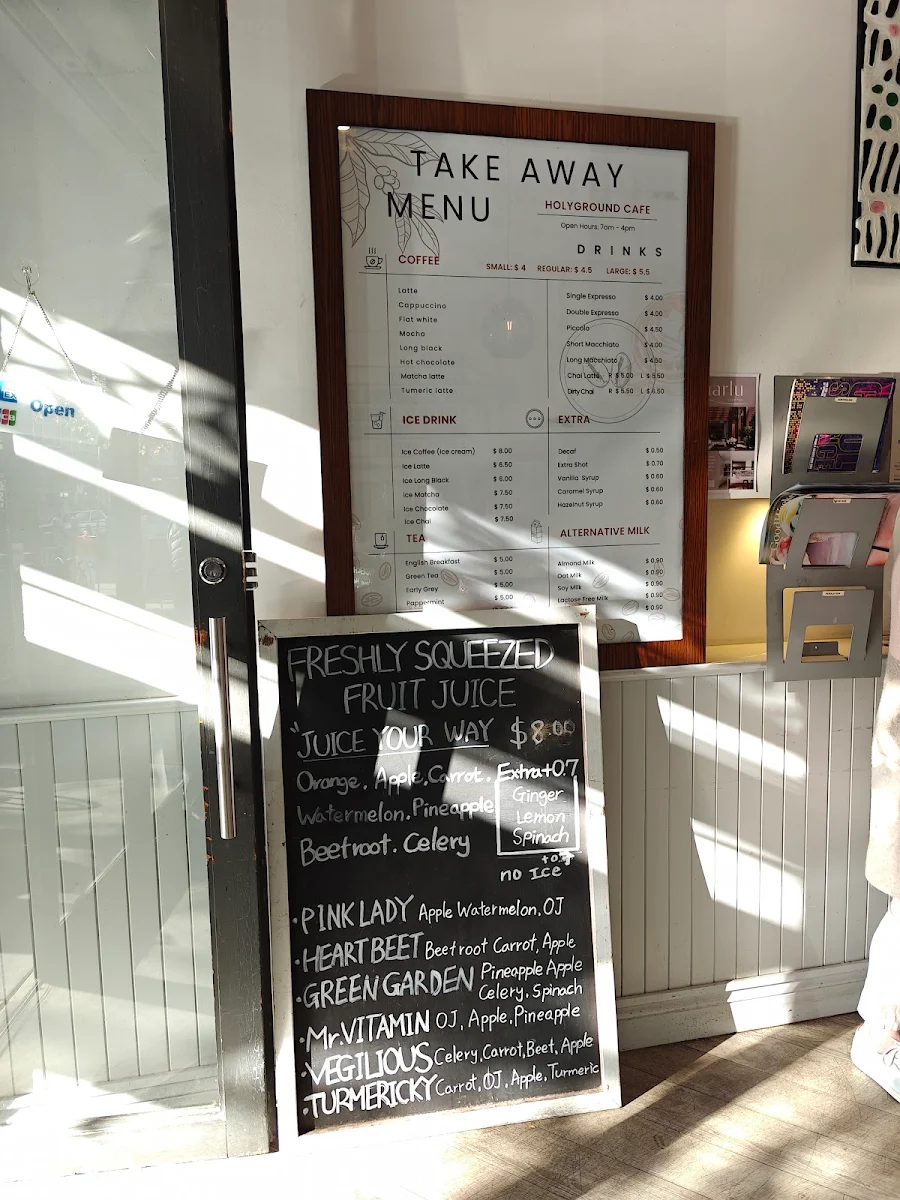 Open
TAKE AWAY
MENU
HOLYGROUND CAFE
Open Hours: 7am - 4pm
DRINKS
COFFEE
SMALL: $ 4 REGULAR: $ 4.5 LARGE: $ 5.5
Latte
Cappuccino
Flat white
Mocha
Long black
Hot chocolate
Matcha latte
Tumeric latte
Single Expresso $ 4.00
Double Expresso $ 4.00
Piccolo $ 4.50
Short Macchiato $ 4.00
Long Macchiato $ 4.50
Chai Latte R $ 5.00 L $ 5.50
Dirty Chai R $ 5.50 L $ 6.50
ICE DRINK
Ice Coffee (Ice cream) $ 8.00
Ice Latte $ 6.50
Ice Long Black $ 6.00
Ice Matcha $ 7.50
Ice Chocolate $ 7.50
Ice Chai $ 7.50
EXTRA
Decaf $ 0.50
Extra Shot $ 0.70
Vanilla Syrup $ 0.60
Caramel Syrup $ 0.60
Hazelnut Syrup $ 0.60
TEA
English Breakfast $ 5.00
Green Tea $ 5.00
Early Grey $ 5.00
Peppermint $ 5.00
ALTERNATIVE MILK
Almond Milk $ 0.90
Oat Milk $ 0.90
Soy Milk $ 0.90
Lactose Free Milk $ 0.90
$ 0.90
arlu
FRESHLY SQUEEZED
FRUIT JUICE
"JUICE YOUR WAY $8.00
Orange. Apple. Carrot.
Watermelon. Pineapple
Beetroot. Celery
Extra+0.7
Ginger
Lemon
Spinach
no Ice
• PINK LADY Apple Watermelon, OJ
• HEART BEET Beetroot Carrot, Apple
• GREEN GARDEN Pineapple Apple
Celery, Spinach
• Mr. VITAMIN OJ, Apple, Pineapple
• VEGILIOUS Celery, Carrot, Beet, Apple
• TURMERICKY Carrot, OJ, Apple, Turmeric